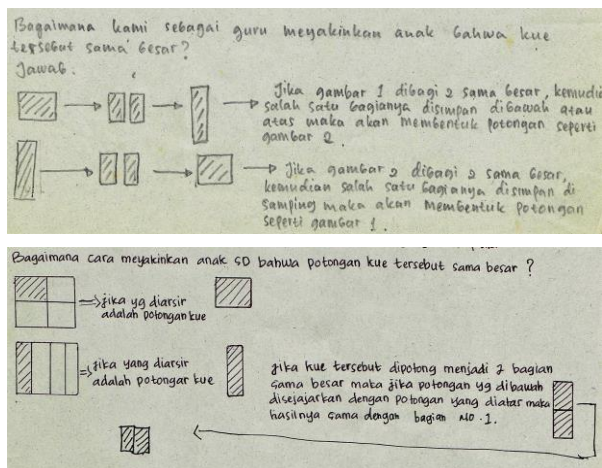 Bagaimana kami sebagai guru meyakinkan anak bahwa kue
tersebut sama besar?
Jawab.
Jika gambar 1 dibagi 2 sama besar, kemudi
salah satu bagianya disimpan dibawah atau
atas maka akan membentuk potongan seperti
gambar 2.
Jika gambar 2 dibagi 2 sama besar,
kemudian salah satu bagianya disimpan di
samping maka akan membentuk potongan
seperti gambar 1.
Bagaimana cara meyakinkan anak SD bahwa potongan kue tersebut sama besar ?
jika yg diarsir
adalah potongan kue
jika yang diarsir
adalah potongar kue
jika kue tersebut dipotong menjadi 2 bagian
sama besar maka jika potongan yg dibawah
disejajarkan dengan potongan yang diatas maka
hasilnya sama dengan bagian no. 1.